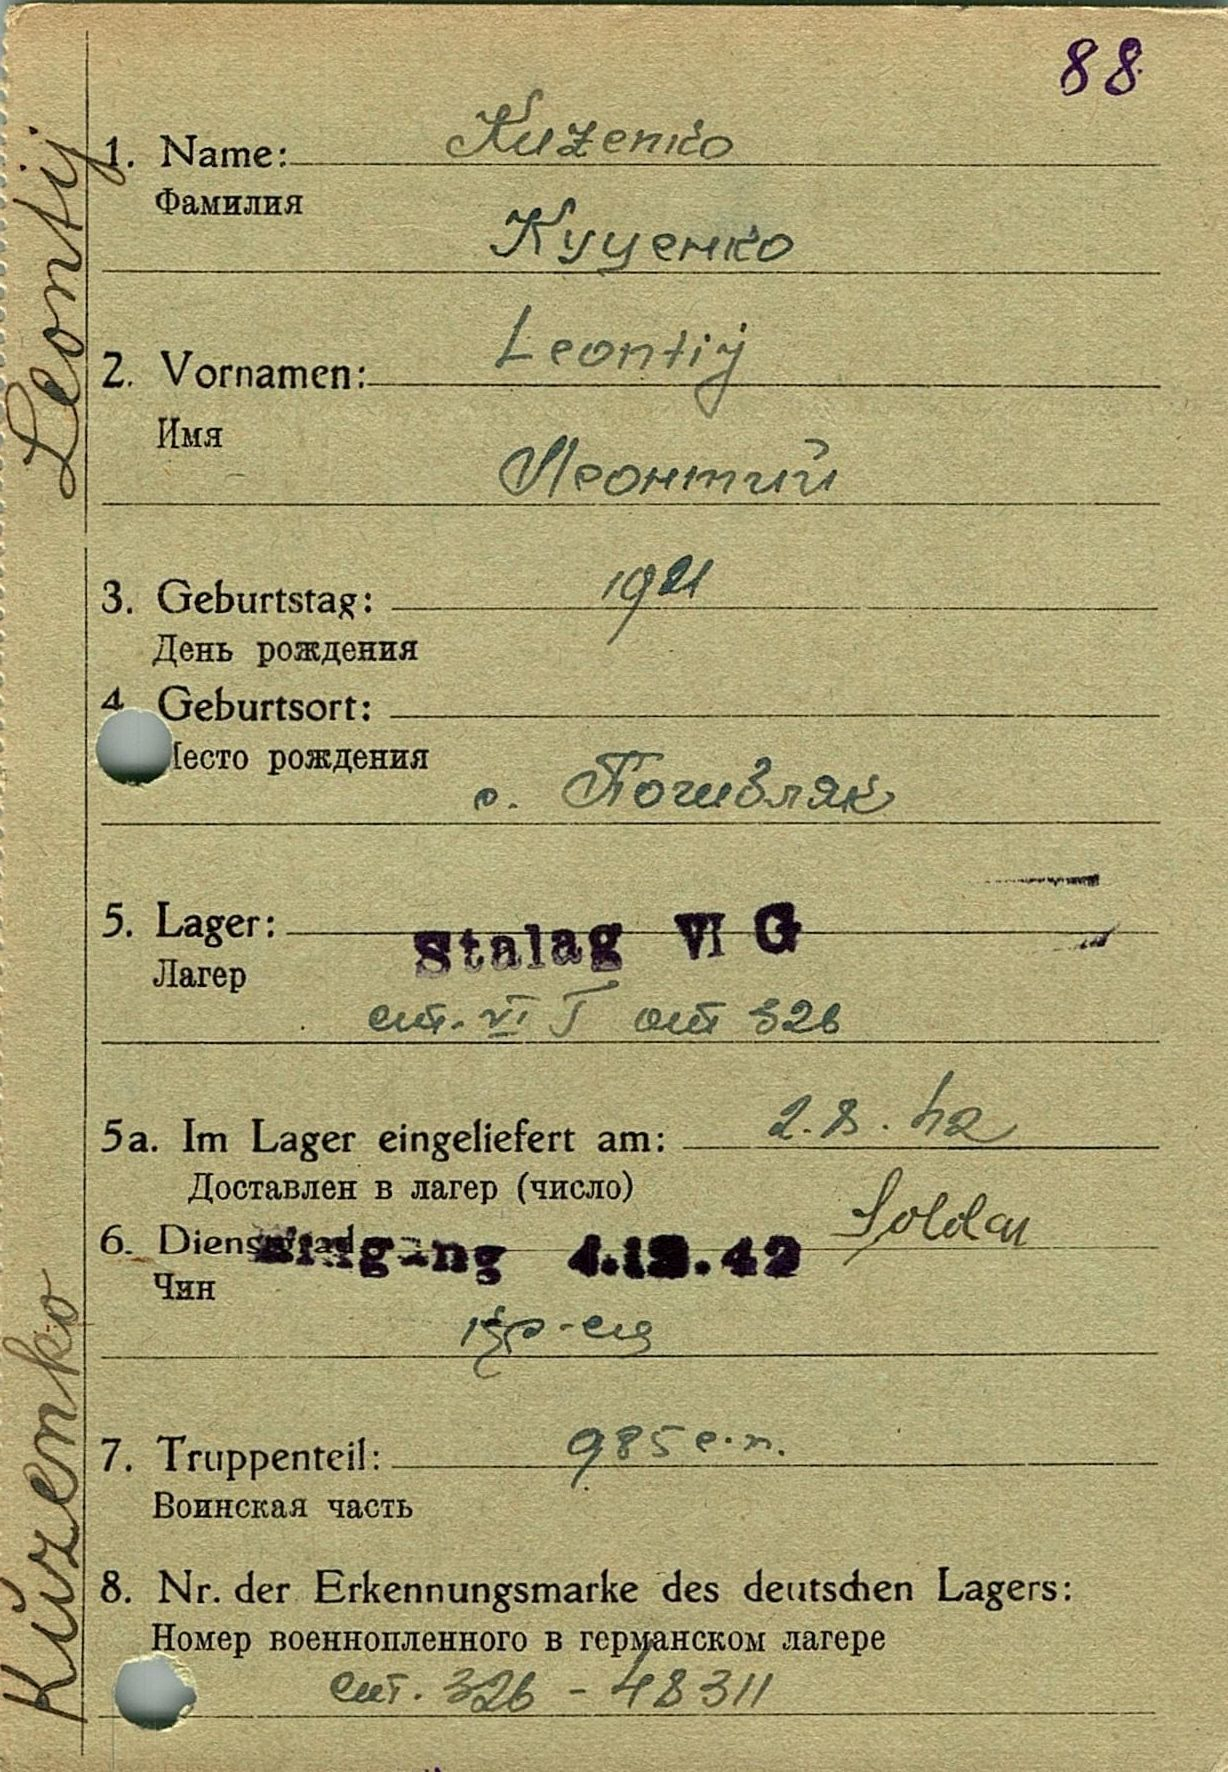 88
1. Name: Kuzenko
Фамилия
Куценко
2. Vornamen: Leontij
Имя
Леонтий
3. Geburtstag: 1921
День рождения
4 Geburtsort:
Место рождения
с. Погивляк
5. Lager: Stalag VI G
Лагер
шт. VI от 326
5a. Im Lager eingeliefert am: 2.8.42
Доставлен в лагер (число)
6. Dienstgrad Soldat
Eingang 4.12.42
Чин
кр-ец
7. Truppenteil: 985 с.п.
Воинская часть
8. Nr. der Erkennungsmarke des deutschen Lagers:
Номер военнопленного в германском лагере
шт. 326 - 48311
Kuzenko Leontij